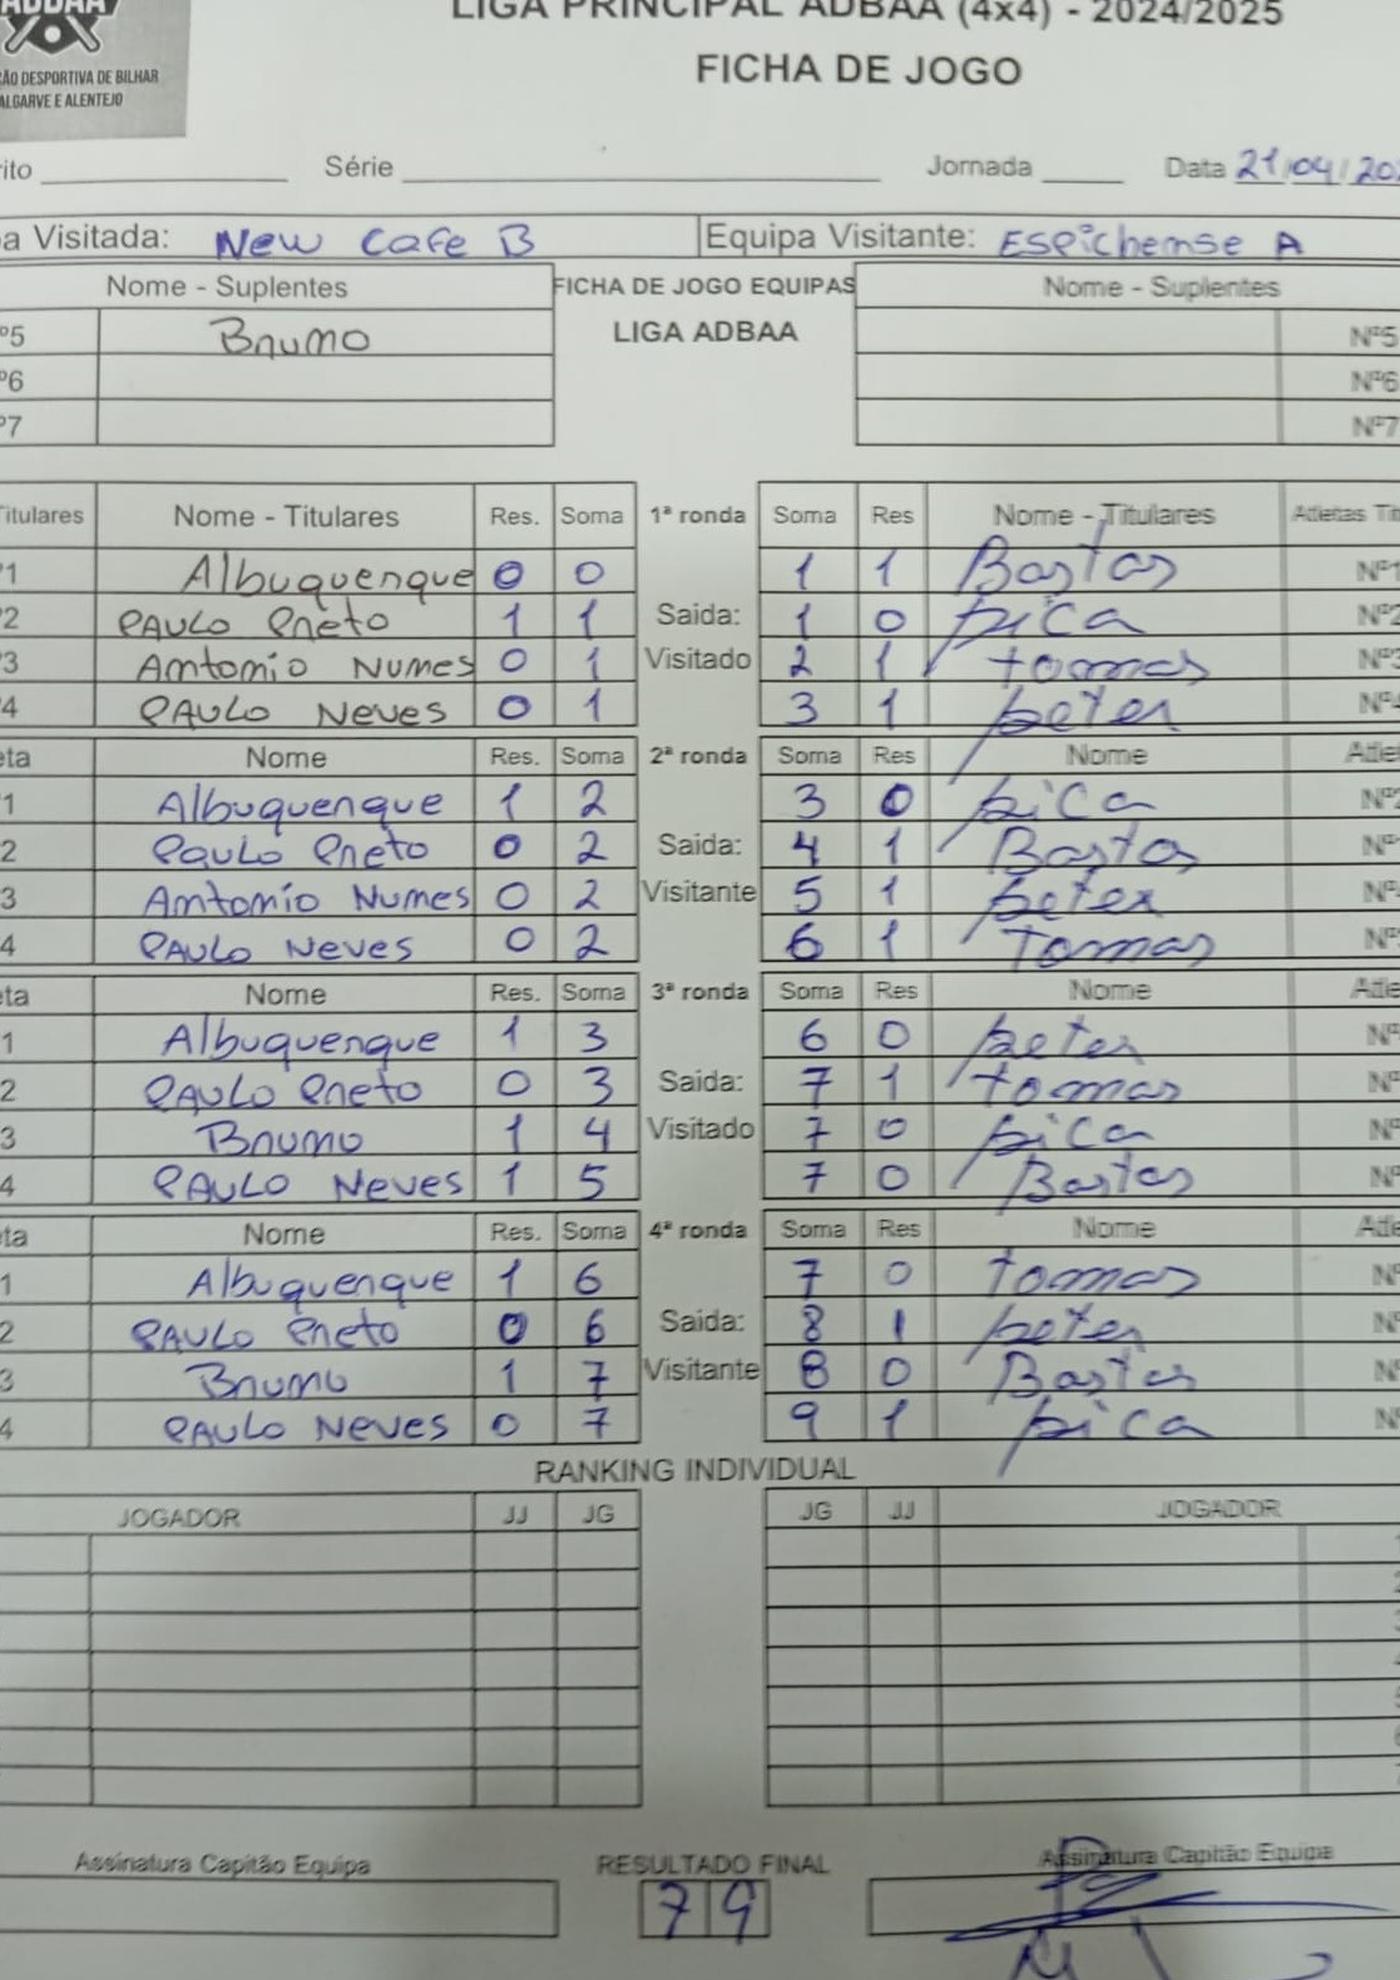 ADBAA
LIGA PRINCIPAL ADBAA (4x4) - 2024/2025
ÃO DESPORTIVA DE BILHAR
ALGARVE E ALENTEJO
FICHA DE JOGO
rito Série Jornada Data 21/04/20
a Visitada: New Cafe B Equipa Visitante: Espichense A
Nome - Suplentes FICHA DE JOGO EQUIPAS Nome - Suplentes
º5 Bruno LIGA ADBAA Nº5
º6 Nº6
º7 Nº7
Titulares Nome - Titulares Res. Soma 1ª ronda Soma Res Nome - Titulares Atletas Tit
1 Albuquerque 0 0 1 1 Bastos Nº1
2 PAULO Preto 1 1 Saida: 1 0 pica Nº2
3 Antonio Nunes 0 1 Visitado 2 1 tomas Nº3
4 PAULO Neves 0 1 3 1 peter Nº4
eta Nome Res. Soma 2ª ronda Soma Res Nome Atle
1 Albuquerque 1 2 3 0 pica Nº2
2 Paulo Preto 0 2 Saida: 4 1 Bastos Nº
3 Antonio Nunes 0 2 Visitante 5 1 peter Nº
4 PAULO Neves 0 2 6 1 Tomas Nº
eta Nome Res. Soma 3ª ronda Soma Res Nome Atle
1 Albuquerque 1 3 6 0 peter Nº
2 PAULO Preto 0 3 Saida: 7 1 tomas Nº
3 Bruno 1 4 Visitado 7 0 pica Nº
4 PAULO Neves 1 5 7 0 Bastos Nº
eta Nome Res. Soma 4ª ronda Soma Res Nome Atle
1 Albuquerque 1 6 7 0 tomas Nº
2 PAULO Preto 0 6 Saida: 8 1 peter Nº
3 Bruno 1 7 Visitante 8 0 Bastos Nº
4 PAULO Neves 0 7 9 1 pica Nº
RANKING INDIVIDUAL
JOGADOR JJ JG JG JJ JOGADOR
Assinatura Capitão Equipa RESULTADO FINAL Assinatura Capitão Equipa
7 9